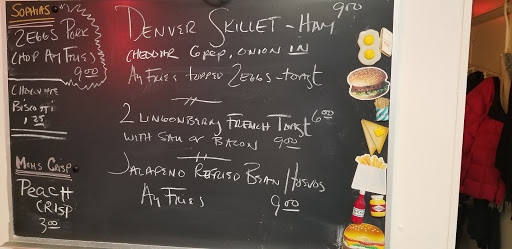 SOPHIAS
2 EGGS PORK
CHOP AU FRIES
9.00
CHOCOLATE
BISCOTTI
1.25
MOMS CRISP
PEACH
CRISP
3.00
DENVER SKILLET - HAM 9.00
CHEDDAR G PEP, ONION IN
AU FRIES TOPPED 2 EGGS - TOAST
2 LINGONBERRY FRENCH TOAST 6.00
WITH SAU OR BACON 9.00
JALAPENO REFRIED BEAN / HUEVOS
AU FRIES 9.00